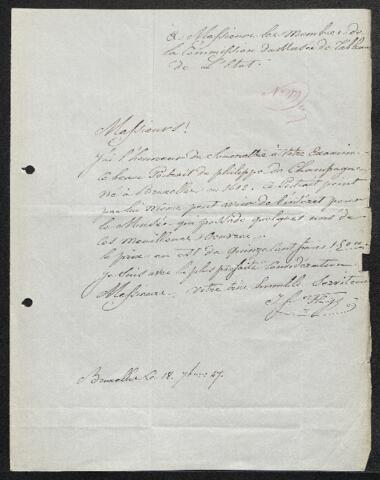 à Messieurs les Membres de
la Commission du Musée de Tableau
de L'Etat.
Messieurs!
J'ai l'honneur de soumettre à Votre Examin
le beau Portrait de philippe de Champagne
né à Bruxelles en 1602. ce Portrait peint
par lui même peut avoir de l'intérêt pour
le Musée, qui possède quelques uns de
ces meilleurs Travaux.
le prix en est de quinze cent francs
Je suis avec la plus parfaite Considération.
Messieurs. Votre très humble Serviteur
Bruxelles Le 18. 7bre 47.